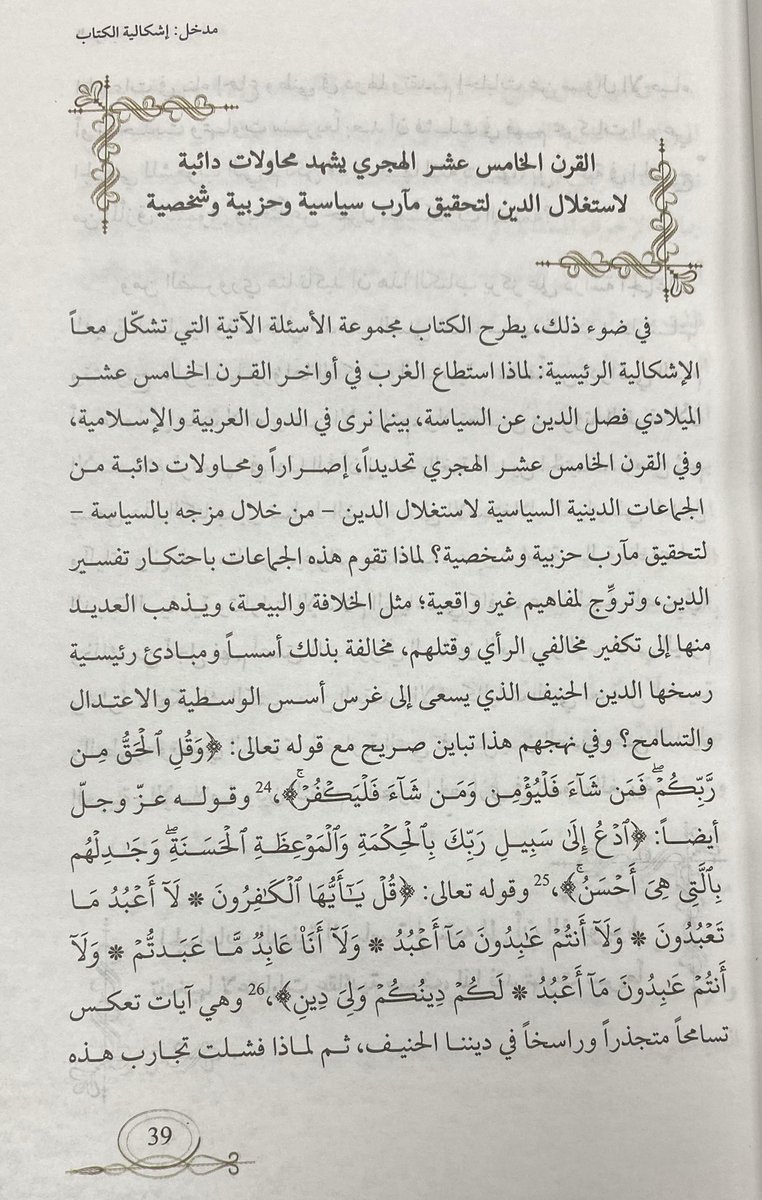 مدخل: إشكالية الكتاب
القرن الخامس عشر الهجري يشهد محاولات دائبة
لاستغلال الدين لتحقيق مآرب سياسية وحزبية وشخصية
في ضوء ذلك، يطرح الكتاب مجموعة الأسئلة الآتية التي تشكّل معاً
الإشكالية الرئيسية: لماذا استطاع الغرب في أواخر القرن الخامس عشر
الميلادي فصل الدين عن السياسة، بينما نرى في الدول العربية والإسلامية،
وفي القرن الخامس عشر الهجري تحديداً، إصراراً ومحاولات دائبة من
الجماعات الدينية السياسية لاستغلال الدين – من خلال مزجه بالسياسة –
لتحقيق مآرب حزبية وشخصية؟ لماذا تقوم هذه الجماعات باحتكار تفسير
الدين، وتروِّج لمفاهيم غير واقعية؛ مثل الخلافة والبيعة، ويذهب العديد
منها إلى تكفير مخالفي الرأي وقتلهم، مخالفة بذلك أسساً ومبادئ رئيسية
رسخها الدين الحنيف الذي يسعى إلى غرس أسس الوسطية والاعتدال
والتسامح؟ وفي نهجهم هذا تباين صريح مع قوله تعالى: ﴿وَقُلِ ٱلۡحَقُّ مِن
رَّبِّكُمۡۖ فَمَن شَآءَ فَلۡيُؤۡمِن وَمَن شَآءَ فَلۡيَكۡفُرۡۚ﴾،24 وقوله عزّ وجلّ
أيضاً: ﴿ٱدۡعُ إِلَىٰ سَبِيلِ رَبِّكَ بِٱلۡحِكۡمَةِ وَٱلۡمَوۡعِظَةِ ٱلۡحَسَنَةِۖ وَجَٰدِلۡهُم
بِٱلَّتِي هِيَ أَحۡسَنُۚ﴾،25 وقوله تعالى: ﴿قُلۡ يَٰٓأَيُّهَا ٱلۡكَٰفِرُونَ * لَآ أَعۡبُدُ مَا
تَعۡبُدُونَ * وَلَآ أَنتُمۡ عَٰبِدُونَ مَآ أَعۡبُدُ * وَلَآ أَنَا۠ عَابِدٞ مَّا عَبَدتُّمۡ * وَلَآ
أَنتُمۡ عَٰبِدُونَ مَآ أَعۡبُدُ * لَكُمۡ دِينُكُمۡ وَلِيَ دِينِ﴾،26 وهي آيات تعكس
تسامحاً متجذراً وراسخاً في ديننا الحنيف، ثم لماذا فشلت تجارب هذه
39